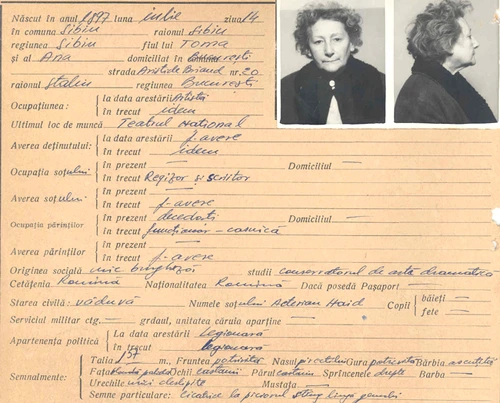 Născut în anul 1897 luna iulie ziua 14
în comuna Sibiu raionul Sibiu
regiunea Sibiu fiul lui Toma
și al Ana domiciliat în București
strada Aristide Briand nr. 20
raionul Stalin regiunea București
Ocupațiunea: la data arestării Artistă
în trecut idem
Ultimul loc de muncă Teatrul Național
Averea deținutului: la data arestării f. avere
în trecut idem
Ocupația soțului în prezent — Domiciliul —
în trecut Regizor și scriitor
Averea soțului în prezent —
în trecut f. avere
Ocupația părinților în prezent decedați Domiciliul —
în trecut funcționar - casnică
Averea părinților în prezent —
în trecut f. avere
Originea socială mic burgheză studii conservatorul de artă dramatică
Cetățenia Română Naționalitatea Română Dacă posedă Pașaport —
Starea civilă: văduvă Numele soțului Haid Copii băieți —
fete —
Serviciul militar ctg. — grdaul, unitatea căruia aparține —
Apartenența politică La data arestării legionară
În trecut legionară
Semnalmente: Talia 157 m., Fruntea potrivită Nasul Gura potrivită Bărbia ascuțită
Fața Ochii castanii Părul castaniu Sprîncenele drepte Barba —
Urechile mici Mustața —
Semne particulare: cicatrice la piciorul stîng